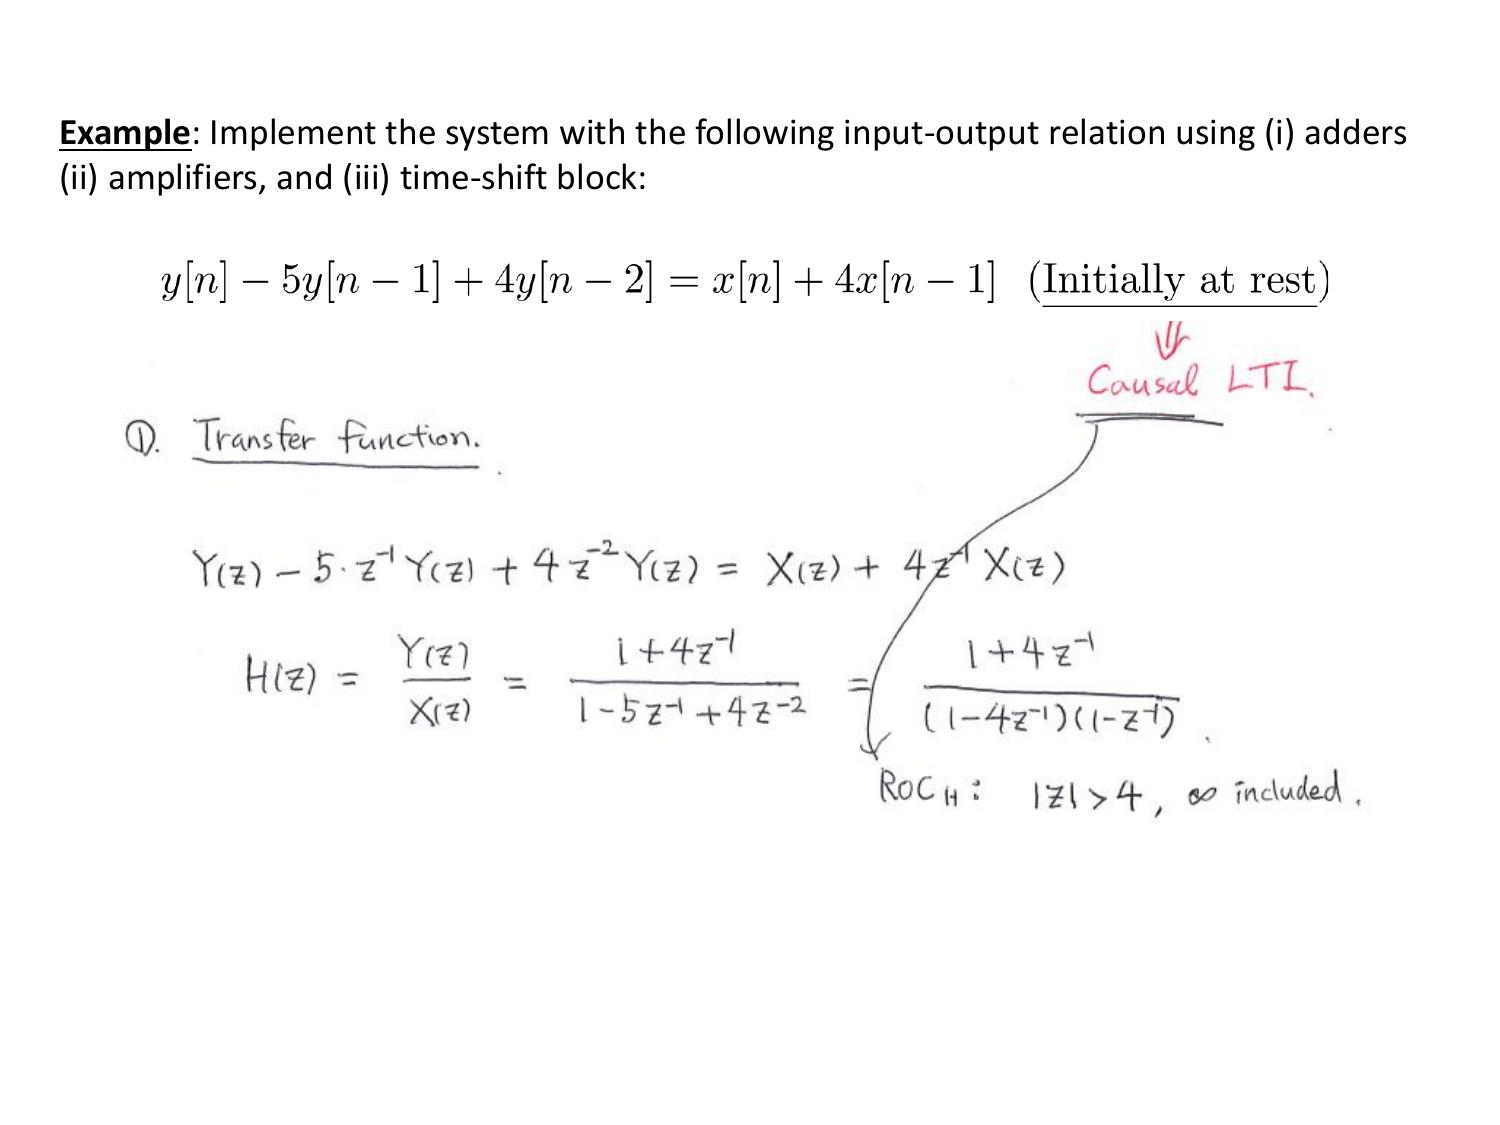 Example: Implement the system with the following input-output relation using (i) adders
(ii) amplifiers, and (iii) time-shift block:
y[n] − 5y[n − 1] + 4y[n − 2] = x[n] + 4x[n − 1] (Initially at rest)
⇓
Causal LTI.
①. Transfer function.
Y(z) − 5·z⁻¹Y(z) + 4z⁻²Y(z) = X(z) + 4z⁻¹X(z)
H(z) = Y(z)/X(z) = (1+4z⁻¹)/(1−5z⁻¹+4z⁻²) = (1+4z⁻¹)/((1−4z⁻¹)(1−z⁻¹)).
ROC_H: |z|>4, ∞ included.